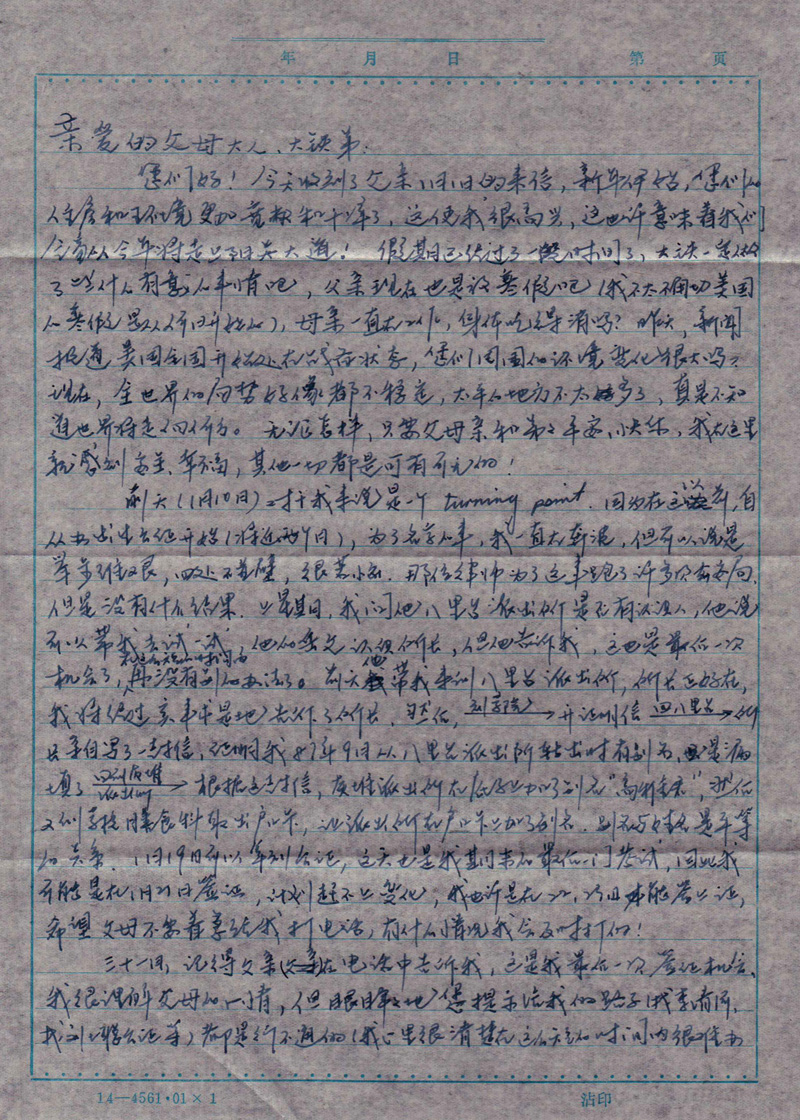 年 月 日 第 页
亲爱的父母大人、大
您们好！今天收到了父亲1月1日的来信，新年伊始，您们的
住房和环境更加宽敞和干净了，这使我很高兴，这也许意味着我们
全家从今年将走上阳关大道！假期已经过了一些时间了，大 一定做
了些什么有意义的事情吧，父亲现在也是放寒假吧（我不太确切美国
的寒假是从何日开始的），母亲一直在工作，身体吃得消吗？昨天，新闻
报道美国全国开始处于战应状态，您们周围的环境变化很大吗？
现在，全世界的局势好像都不稳定，太平的地方不太多了，真是不知
道世界将走向何方。无论怎样，只要父母亲和弟弟平安、快乐，我在这里
就感到安全、幸福，其他一切都是可有可无的！
前天（1月10日）对于我来说是一个 turning point. 因为在这以前，自
从办出生公证开始（将近两个月），为了名字的事，我一直在奔混，但可以说是
举步维艰，四处不着壁，很苦恼。那位律师为了这事跑了许多公安局，
但是没有什么结果。上星期，我问他八里台派出所是否有认识人，他说
可以带我去试一试，他的岳父认识所长，但他告诉我，这也是最后一次
机会了，在这么短的时间内再没有别的办法了。前天他带我来到八里台派出所，所长正好在，
我将经过实事求是地告诉了所长，然后，到学院 开证明信 回八里台 所
长亲自写了一封信，证明我87年9月从八里台派出所转出时有别名，是漏
填了 回到 派出所 根据这封信， 派出所在底子上加了别名“高 ”，然后
又到学校膳食科取出户口卡，让派出所在户口卡上加了别名。别名与姓名是平等
的关系。1月19日可以拿到公证，这天也是我期末的最后一门考试，因此我
可能是在1月21日签证，计划赶不上变化，我也许是在22、23日才能签上证，
希望父母不要着急给我打电话，有什么情况我会及时打的！
三十一日，记得父亲在电话中告诉我，这是我最后一次签证机会，
我很理解父母的心情，但 地 您提示给我的路子（找李 ，
找刘 公证等）都是行不通的（我心里很清楚在这么短的时间内很难办
14—4561·01×1 沽印